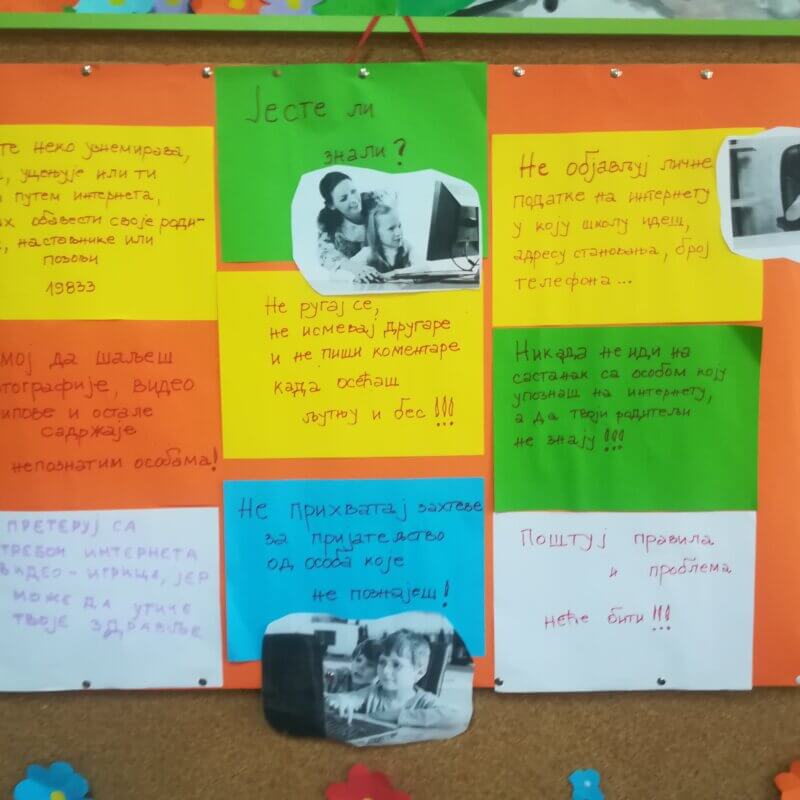 те неко узнемирава,
, уцењује или ти
путем интернета,
обавести своје роди-
, наставнике или
позови
19833
мој да шаљеш
тографије, видео
ипове и остале
садржаје
непознатим особама!
ПРЕТЕРУЈ СА
ТРЕБОМ ИНТЕРНЕТА
ВИДЕО-ИГРИЦА, ЈЕР
МОЖЕ ДА УТИЧЕ
ТВОЈЕ ЗДРАВЉЕ
Јесте ли
знали?
Не ругај се,
не исмевај другаре
и не пиши коментаре
када осећаш
љутњу и бес!!!
Не прихватај захтеве
за пријатељство
од особа које
не познајеш!
Не објављуј личне
податке на интернету
у коју школу идеш,
адресу становања, број
телефона...
Никада не иди на
састанак са особом коју
упознаш на интернету,
а да твоји родитељи
не знају!!!
Поштуј правила
и проблема
неће бити!!!